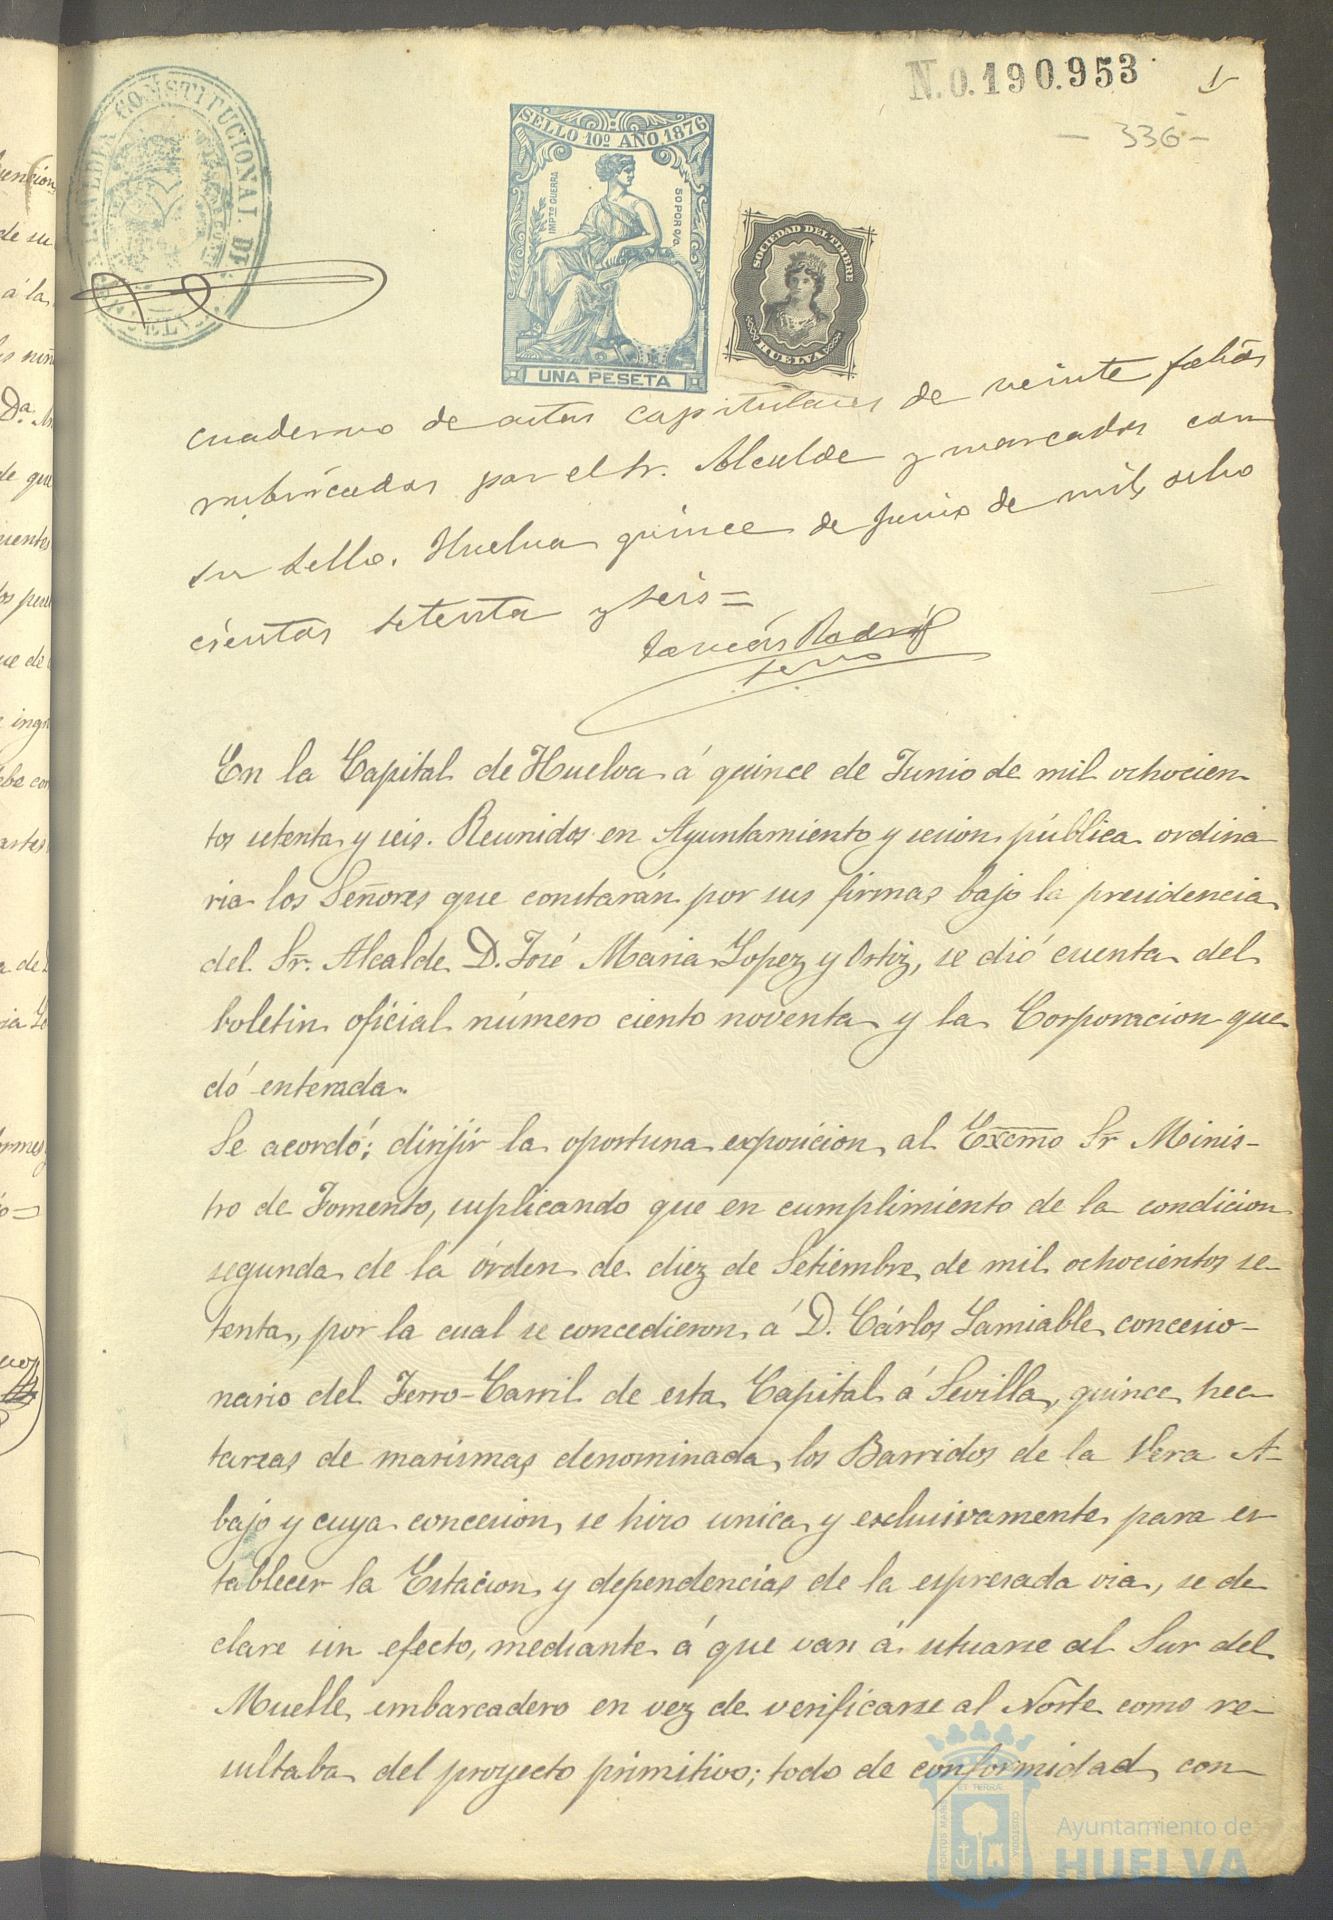 N.0.190.953
1
- 336 -
ALCALDIA CONSTITUCIONAL DE
HUELVA
SELLO 10º AÑO 1876
IMPTO GUERRA
50 POR 0/0
UNA PESETA
SOCIEDAD DEL TIMBRE
HUELVA
Cuaderno de actas capitulares de veinte folios
rubricados por el Sr. Alcalde y marcados con
su sello. Huelva quince de Junio de mil ocho
cientos setenta y seis=
En la Capital de Huelva á quince de Junio de mil ochocien
tos setenta y seis. Reunidos en Ayuntamiento y sesion pública ordina
ria los Señores que constarán por sus firmas bajo la presidencia
del Sr. Alcalde D. José Maria Lopez y Ortiz, se dió cuenta del
boletin oficial número ciento noventa y la Corporacion que
dó enterada.
Se acordó: dirijir la oportuna exposicion al Excmo Sr Minis-
tro de Fomento, suplicando que en cumplimiento de la condicion
segunda de la órden de diez de Setiembre de mil ochocientos se-
tenta, por la cual se concedieron á D. Cárlos Lamiable concesio-
nario del Ferro-Carril de esta Capital á Sevilla, quince hec
tareas de marismas denominada los Barridos de la Vera A-
bajo y cuya concesion se hizo unica y exclusivamente para es
tablecer la Estacion y dependencias de la espresada via, se de
clare sin efecto, mediante á que van á situarse al Sur del
Muelle embarcadero en vez de verificarse al Norte como re-
sultaba del proyecto primitivo; todo de conformidad con
PORTUS MARIS
ET TERRÆ
CUSTODIA
Ayuntamiento de
HUELVA